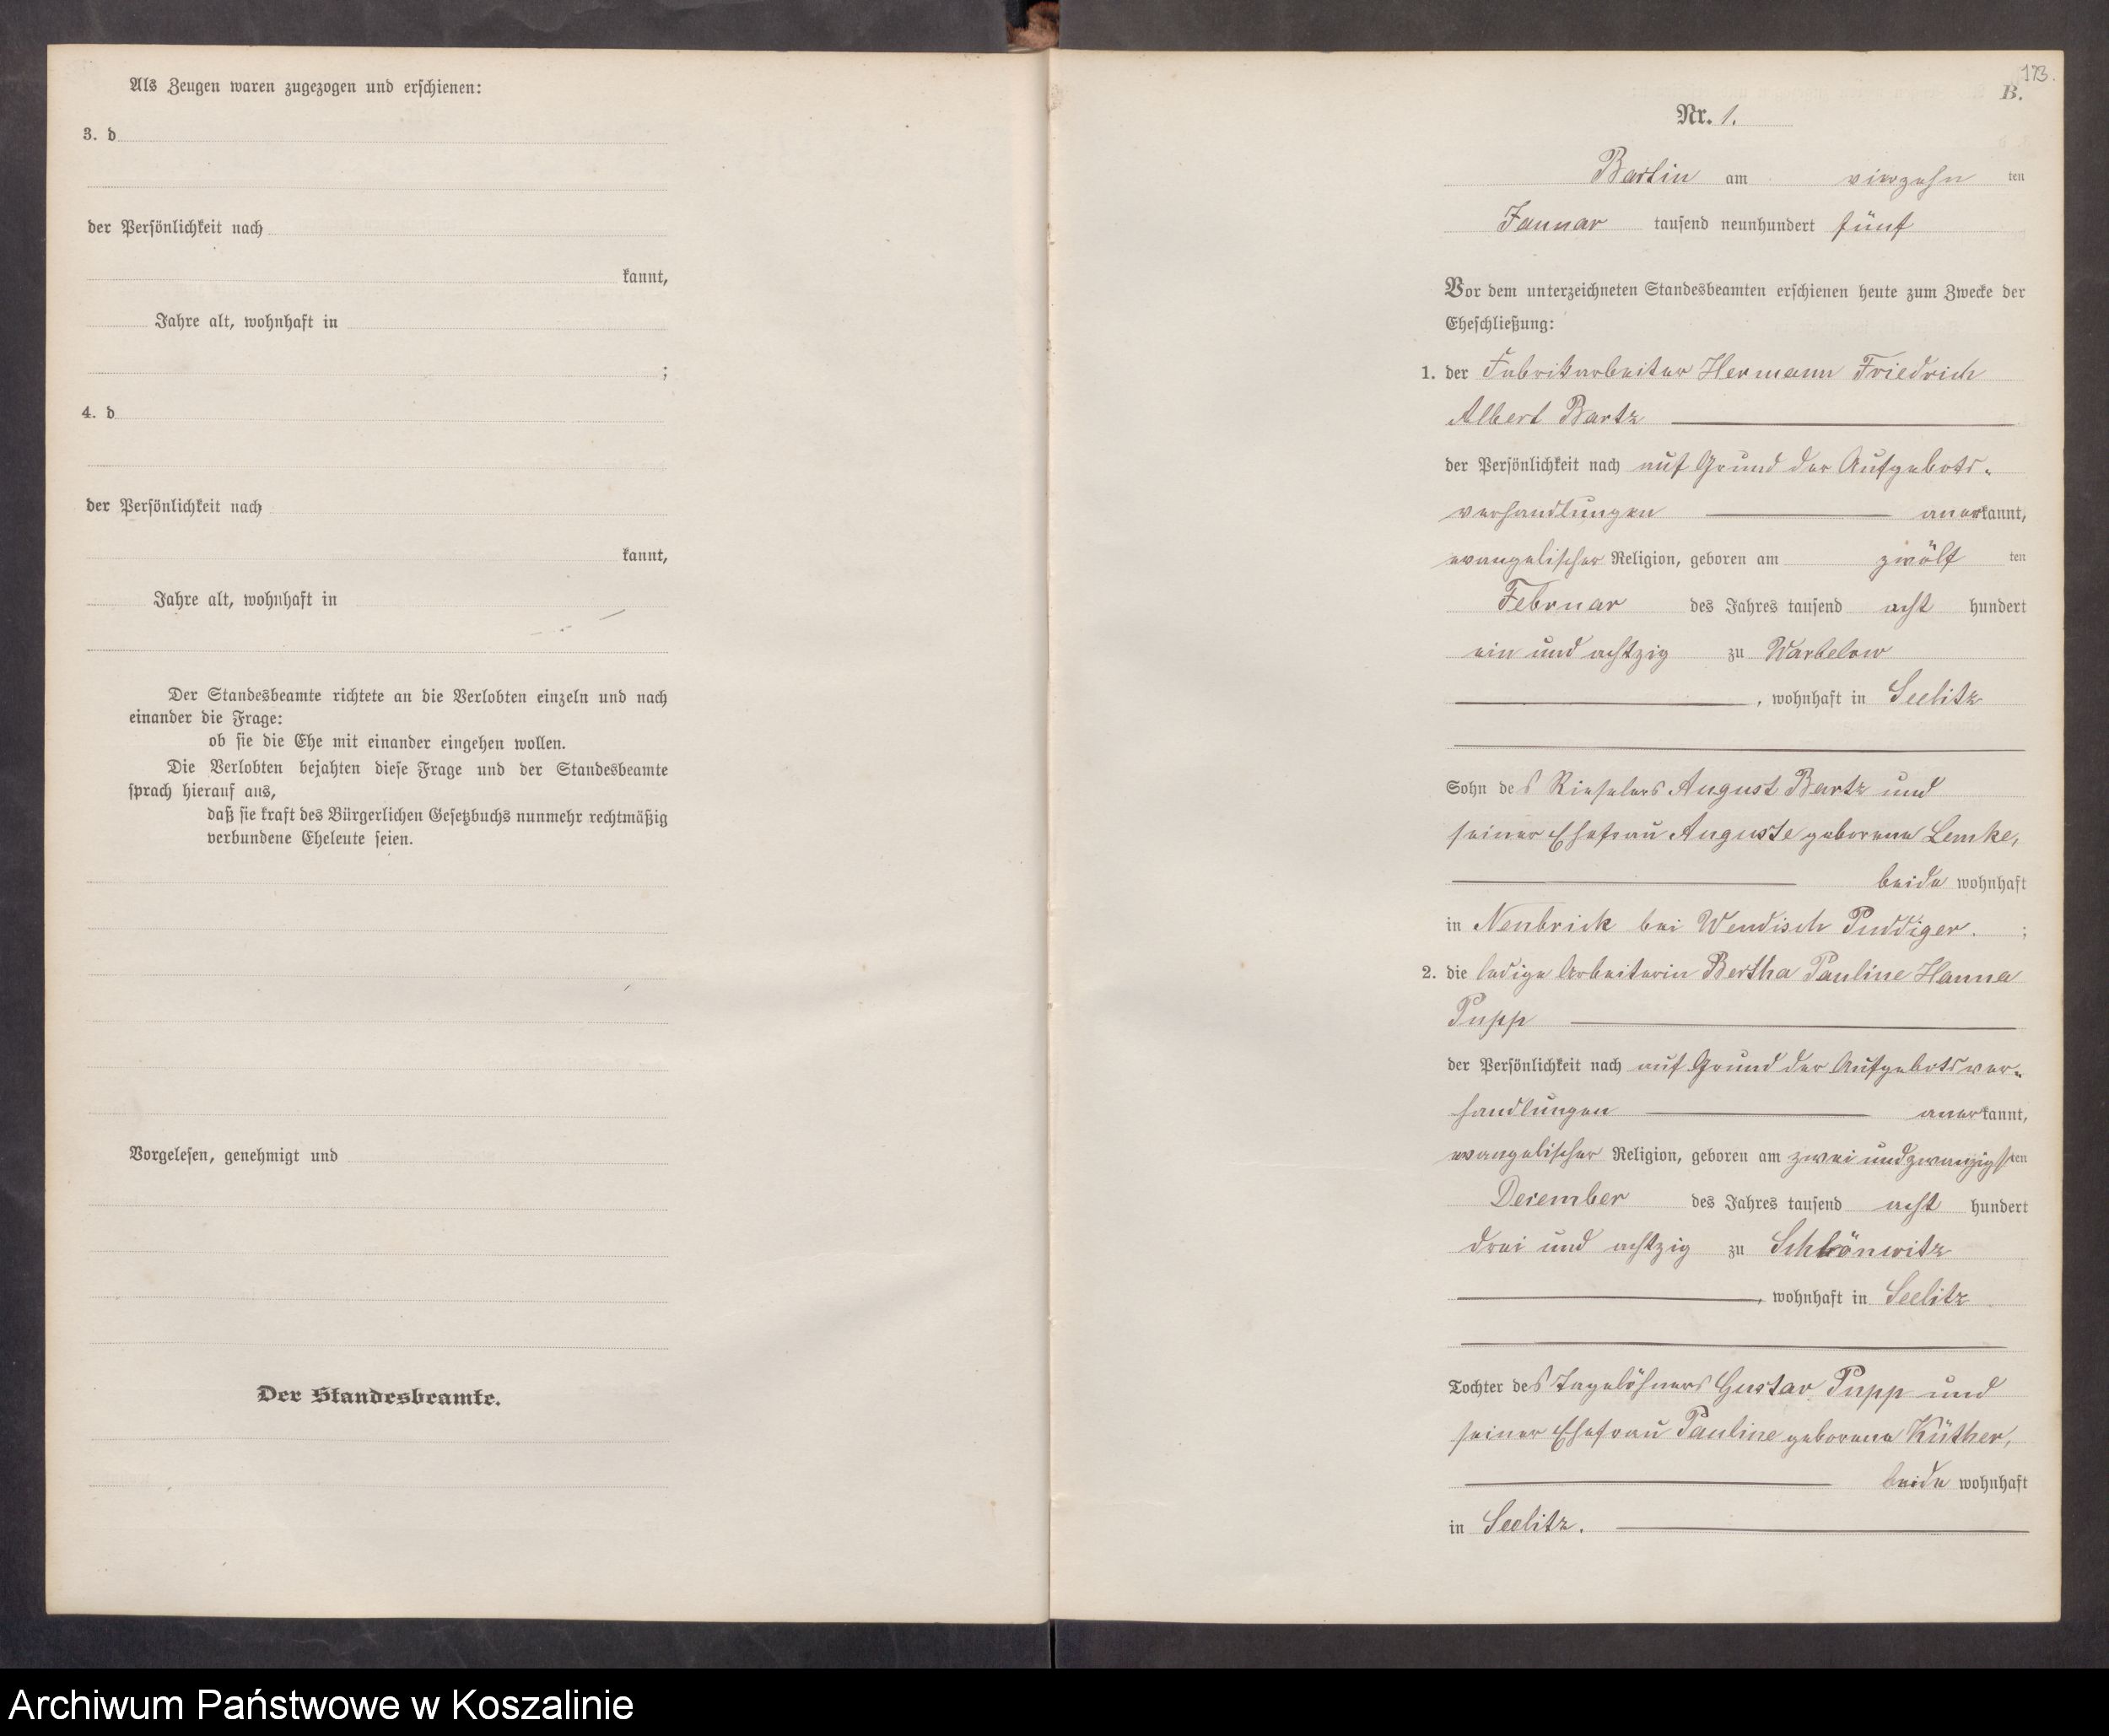 Als Zeugen waren zugezogen und erschienen:
3. d
der Persönlichkeit nach
kannt,
Jahre alt, wohnhaft in
;
4. d
der Persönlichkeit nach
kannt,
Jahre alt, wohnhaft in
Der Standesbeamte richtete an die Verlobten einzeln und nach
einander die Frage:
ob sie die Ehe mit einander eingehen wollen.
Die Verlobten bejahten diese Frage und der Standesbeamte
sprach hierauf aus,
daß sie kraft des Bürgerlichen Gesetzbuchs nunmehr rechtmäßig
verbundene Eheleute seien.
Vorgelesen, genehmigt und
Der Standesbeamte.
173.
B.
Nr. 1.
Bartin am vierzehn ten
Januar tausend neunhundert fünf
Vor dem unterzeichneten Standesbeamten erschienen heute zum Zwecke der
Eheschließung:
1. der Fabrikarbeiter Hermann Friedrich
Albert Bartz
der Persönlichkeit nach auf Grund der Aufgebots-
verhandlungen anerkannt,
evangelischer Religion, geboren am zwölf ten
Februar des Jahres tausend acht hundert
ein und achtzig zu Warbelow
, wohnhaft in Seelitz
Sohn des Rieselers August Bartz und
seiner Ehefrau Auguste geborene Lemke,
beide wohnhaft
in Neubrick bei Wendisch Puddiger. ;
2. die ledige Arbeiterin Bertha Pauline Hanna
Pupp
der Persönlichkeit nach auf Grund der Aufgebotsver-
handlungen anerkannt,
evangelischer Religion, geboren am zwei und zwanzigsten
Dezember des Jahres tausend acht hundert
drei und achtzig zu Schlönwitz
, wohnhaft in Seelitz
Tochter des Tagelöhners Gustav Pupp und
seiner Ehefrau Pauline geborene Küther,
beide wohnhaft
in Seelitz.
Archiwum Państwowe w Koszalinie